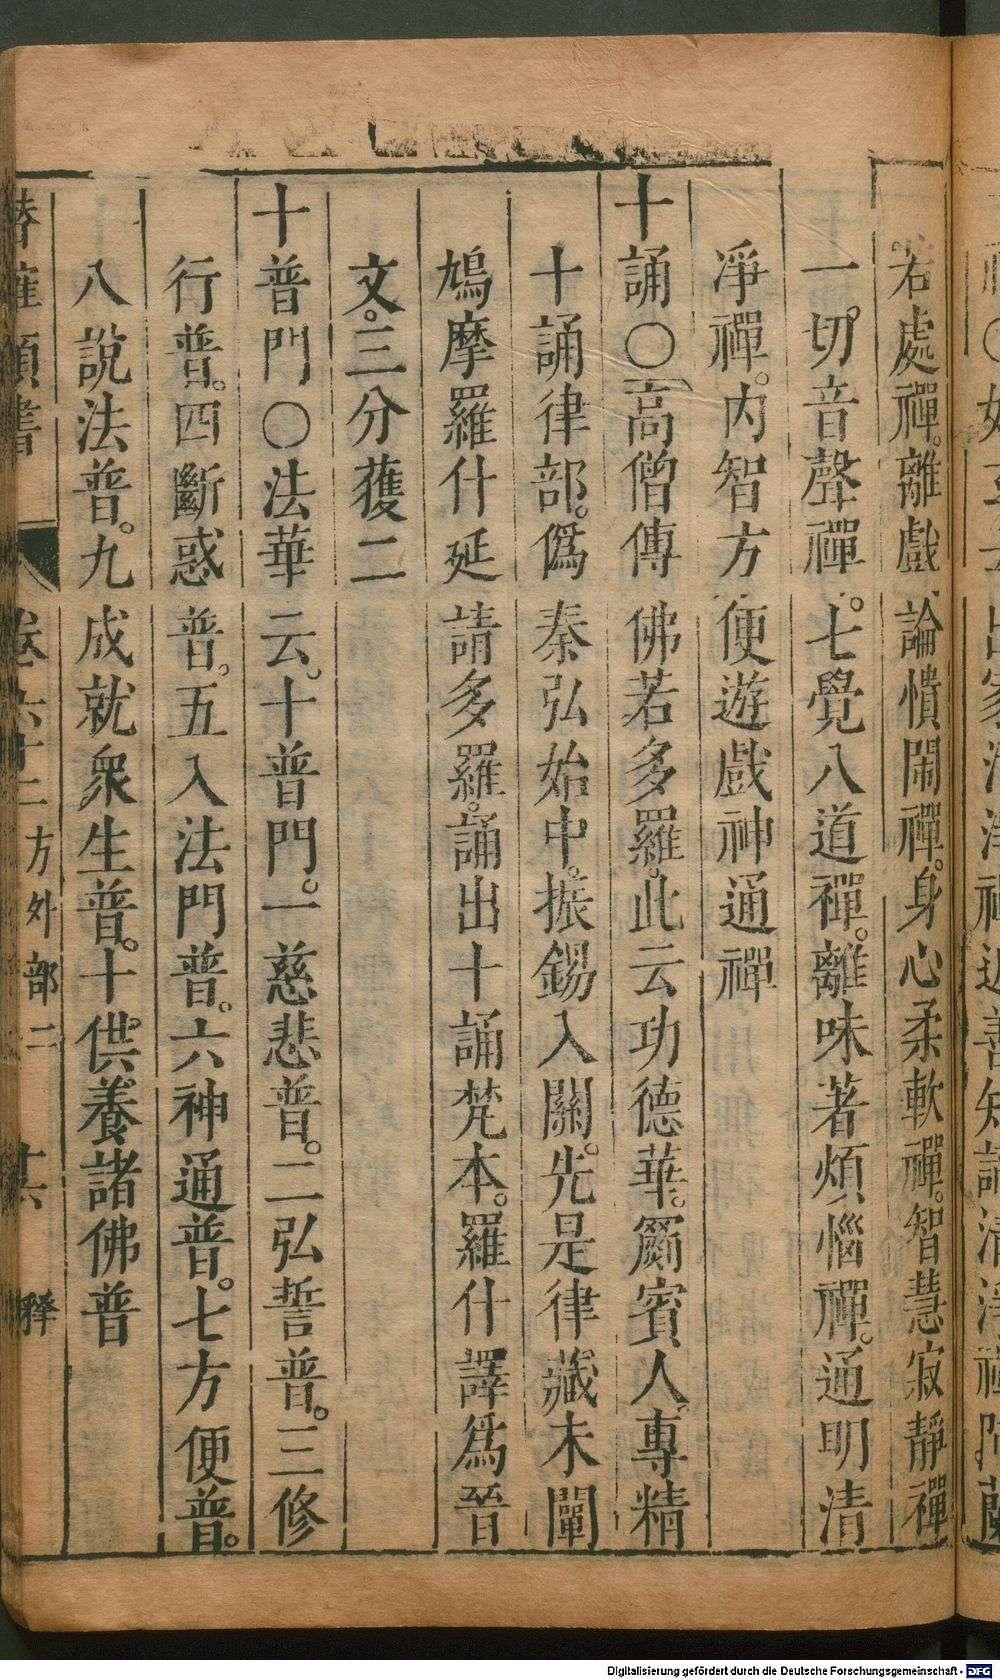 若處禪。離戲論憒閙禪。身心柔軟禪。智慧寂靜禪
一。切音聲禪。七覺八道禪。離味著煩惱禪。通明清
淨禪。内智方便遊戲神通禪
十誦○高僧傳佛若多羅。此云功德華。罽賓人。專精
十誦律部。僞秦弘始中。振錫入關。先是律藏未闡
鳩摩羅什延請多羅。誦出十誦梵本。羅什譯爲晉
文。三分獲二
十普門○法華云。十普門。一慈悲普。二弘誓普。三修
行普。四斷惑普。五入法門普。六神通普。七方便普。
八說法普。九成就衆生普。十。供養諸佛普
卷六十二 方外部二 廿六 釋
Digitalisierung gefördert durch die Deutsche Forschungsgemeinschaft - DFG